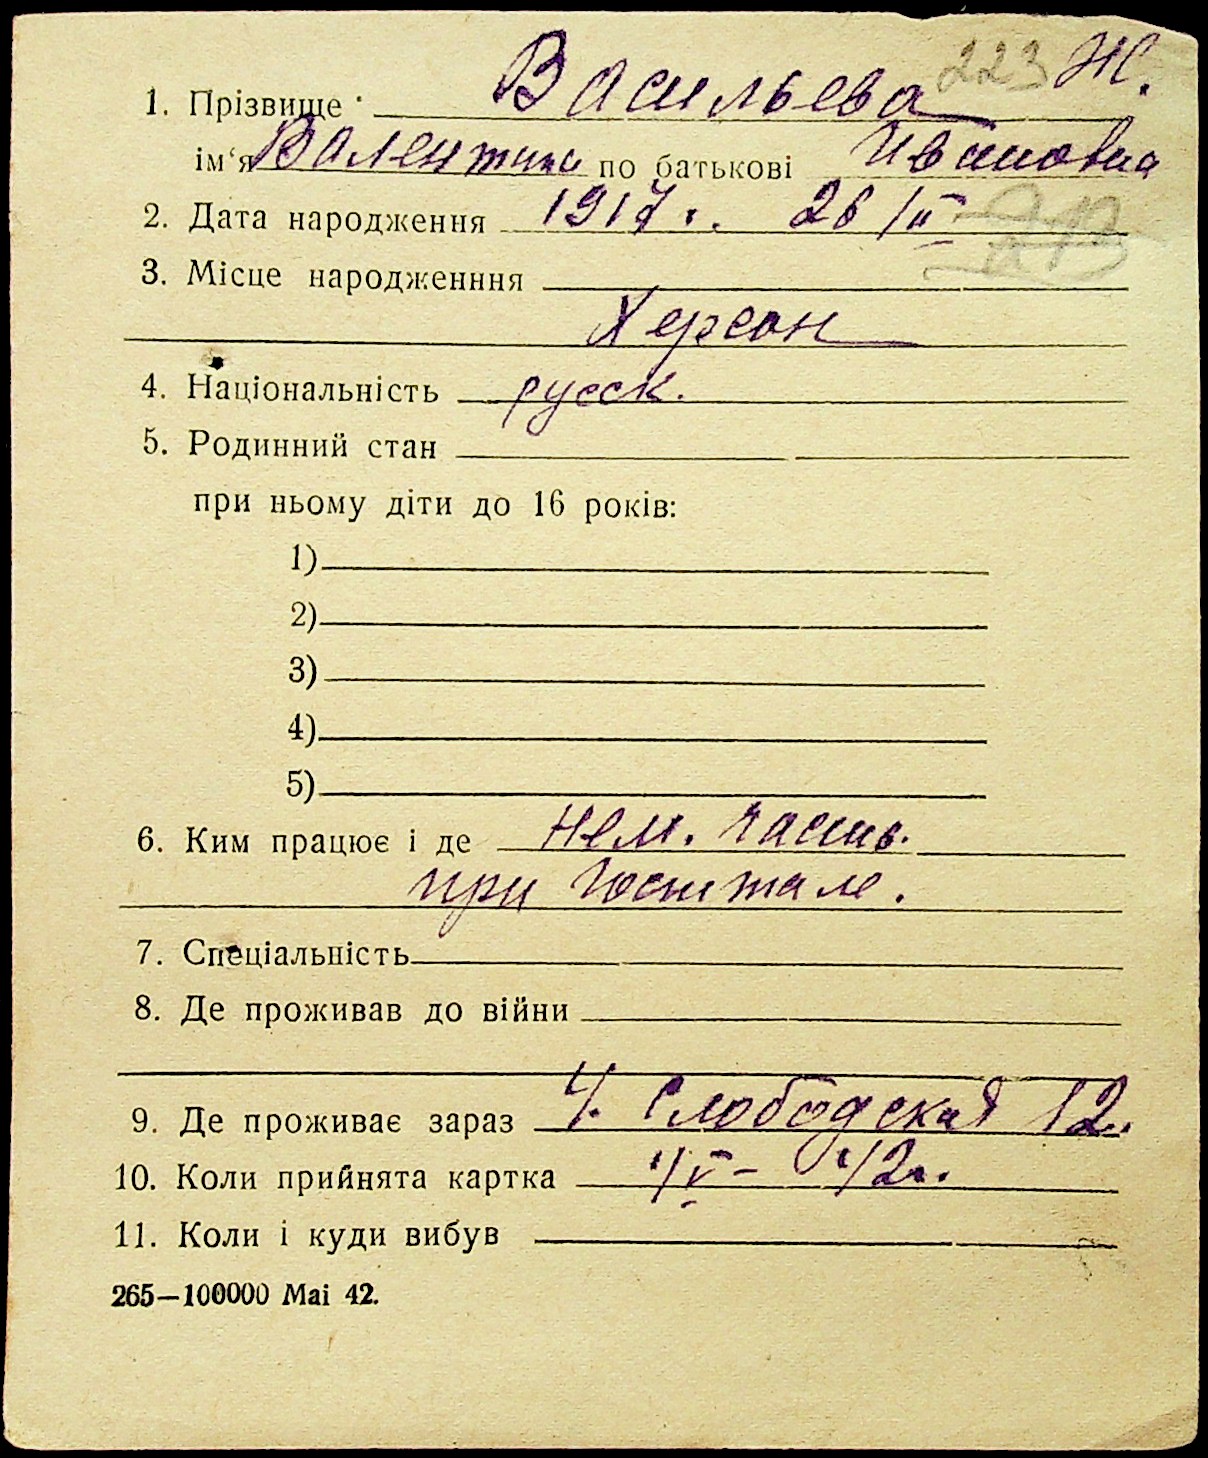 223 Ж.
1. Прізвище Васильева
ім‘я Валентина по батькові Ивановна
2. Дата народження 1917 г. 26/II
3. Місце народженння
Херсон
4. Національність русск.
5. Родинний стан
при ньому діти до 16 років:
1)
2)
3)
4)
5)
6. Ким працює і де нем. часть.
при госпитале.
7. Спеціальність
8. Де проживав до війни
9. Де проживає зараз Слободская 12.
10. Коли прийнята картка 42г.
11. Коли і куди вибув
265—100000 Mai 42.